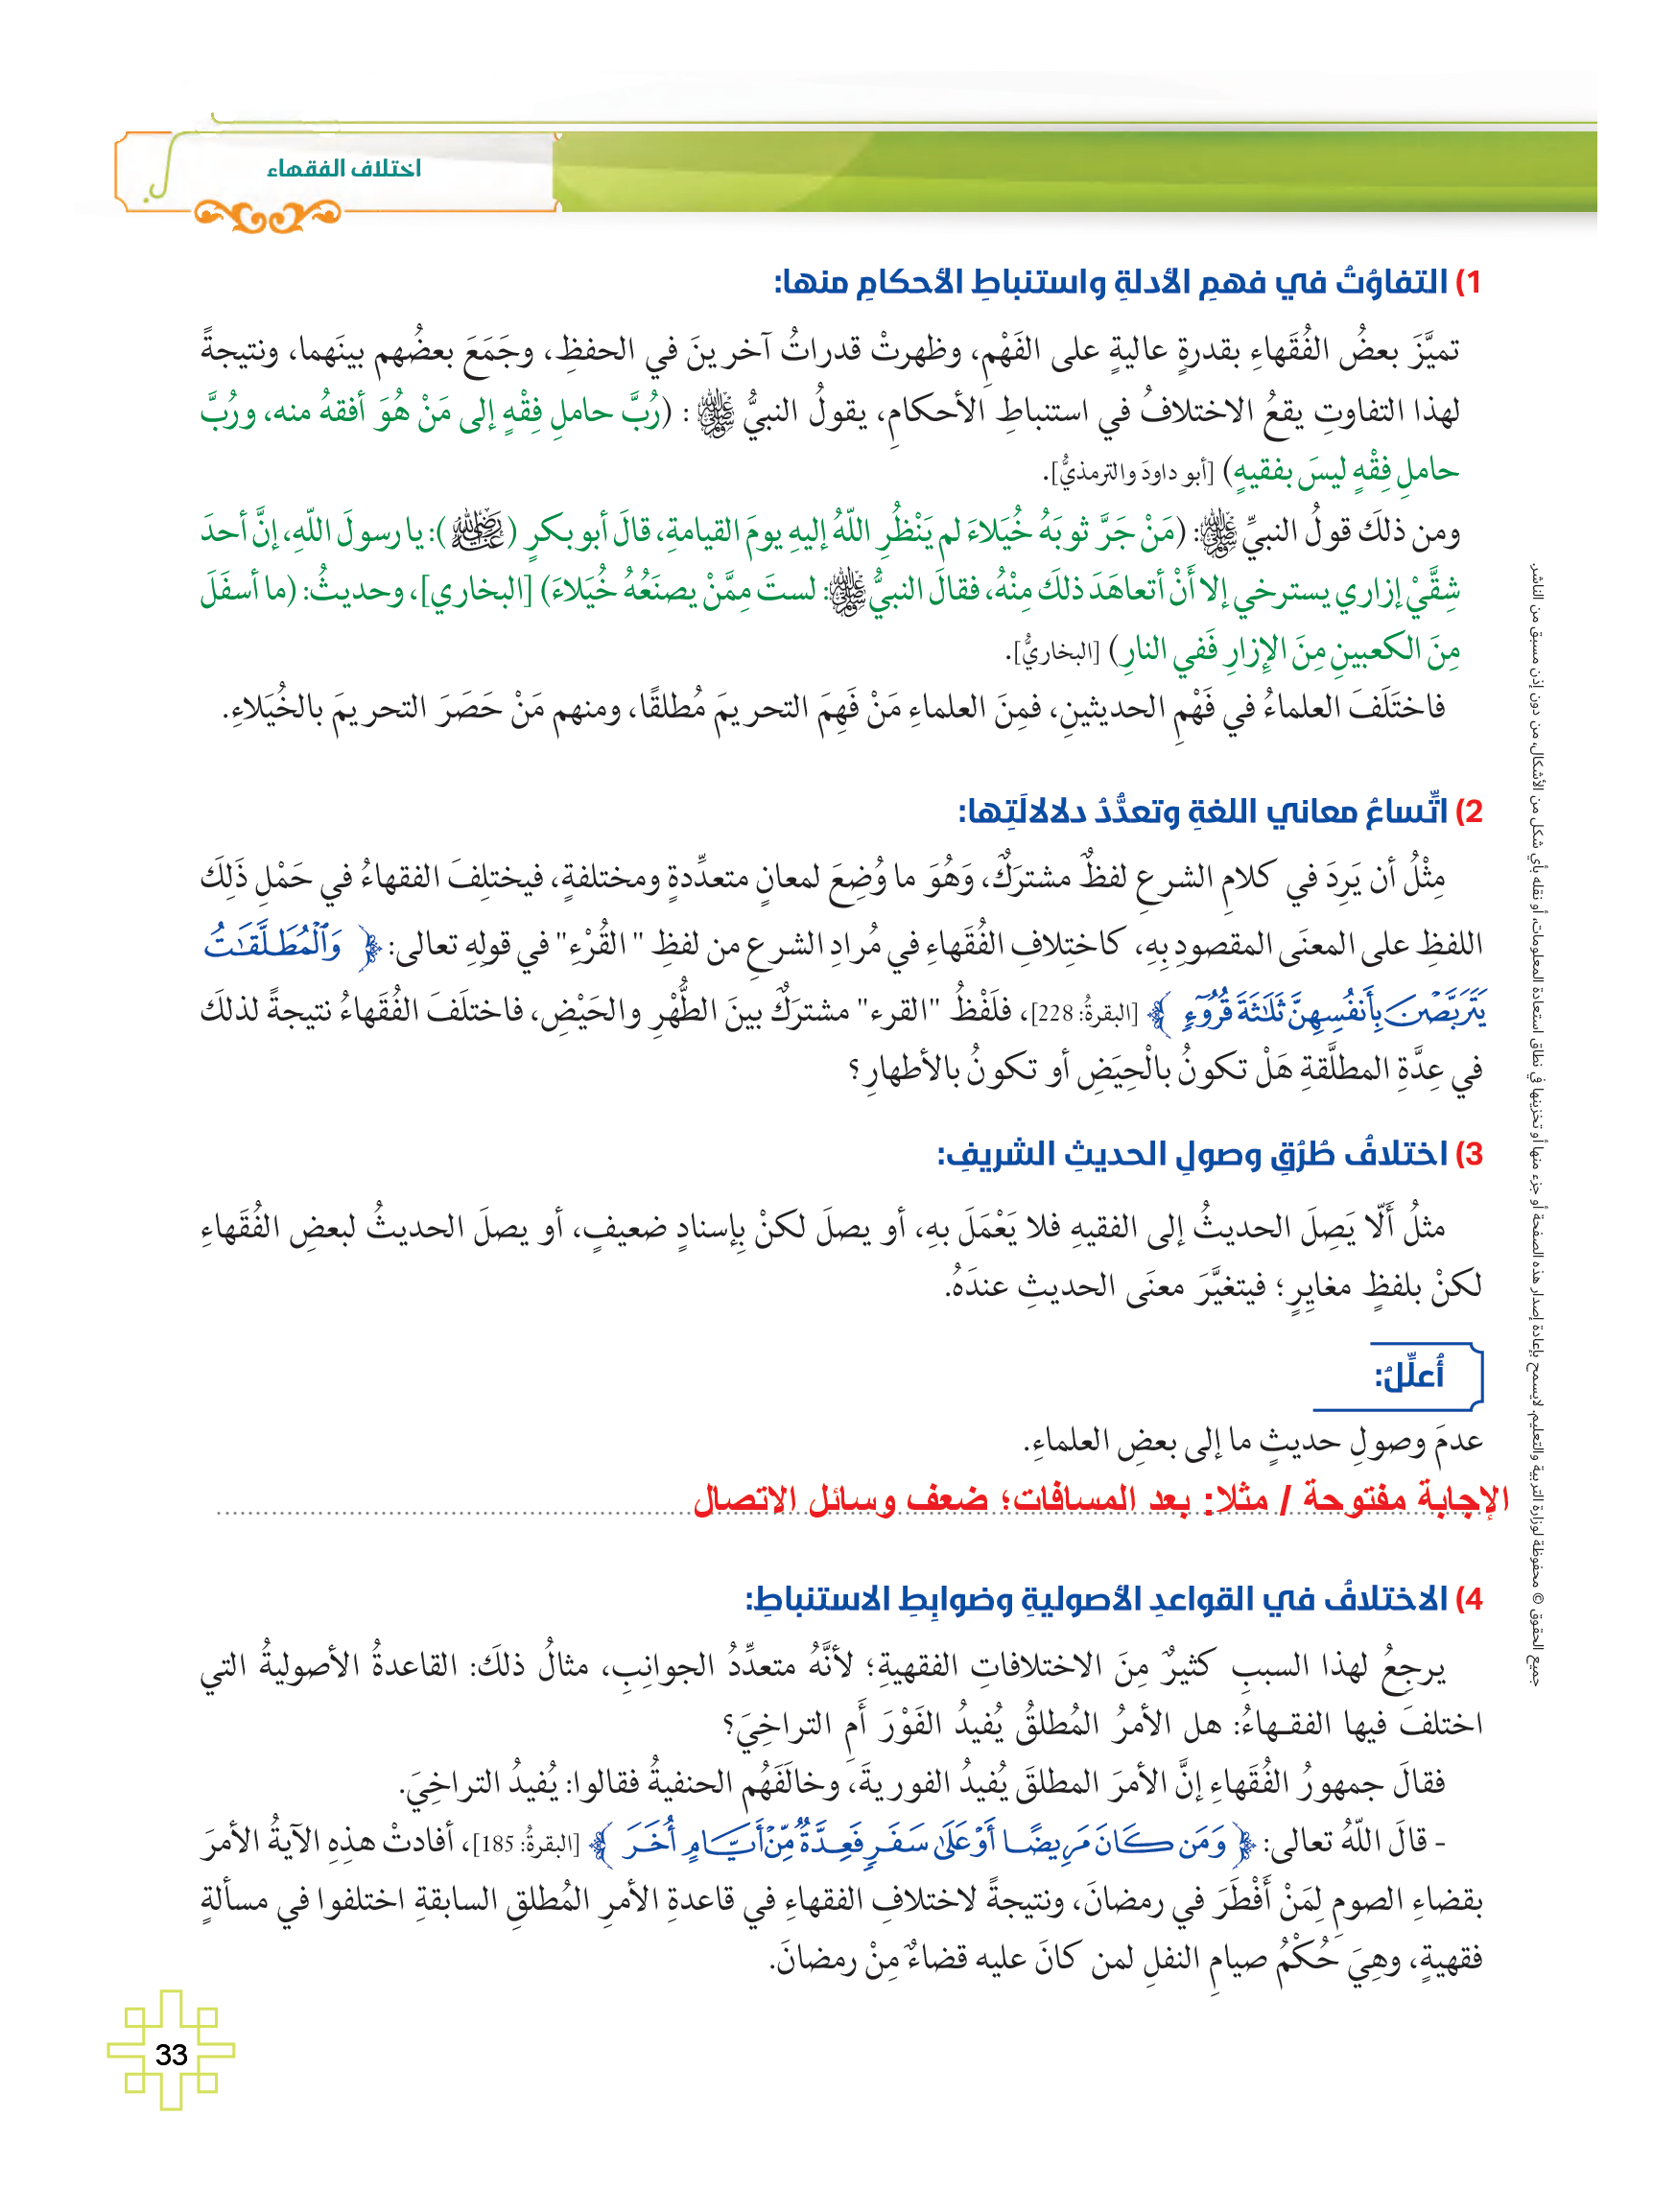 اختلاف الفقهاء
1) التفاوُتُ في فهمِ الأدلةِ واستنباطِ الأحكامِ منها:
تميَّزَ بعضُ الفُقَهاءِ بقدرةٍ عاليةٍ على الفَهْمِ، وظهرتْ قدراتُ آخرينَ في الحفظِ، وجَمَعَ بعضُهم بينَهما، ونتيجةً
لهذا التفاوتِ يقعُ الاختلافُ في استنباطِ الأحكامِ، يقولُ النبيُّ ﷺ : (رُبَّ حاملِ فِقْهٍ إلى مَنْ هُوَ أفقهُ منه، ورُبَّ
حاملِ فِقْهٍ ليسَ بفقيهٍ) [أبو داودَ والترمذيُّ].
ومن ذلكَ قولُ النبيِّ ﷺ: (مَنْ جَرَّ ثوبَهُ خُيَلاءَ لم يَنْظُرِ اللّهُ إليهِ يومَ القيامةِ، قالَ أبو بكرٍ (رضي الله عنه): يا رسولَ اللّهِ، إنَّ أحدَ
شِقَّيْ إزاري يسترخي إلا أَنْ أتعاهَدَ ذلكَ مِنْهُ، فقالَ النبيُّ ﷺ: لستَ مِمَّنْ يصنَعُهُ خُيَلاءَ) [البخاري]، وحديثُ: (ما أسفَلَ
مِنَ الكعبينِ مِنَ الإزارِ فَفي النارِ) [البخاريُّ].
فاختَلَفَ العلماءُ في فَهْمِ الحديثينِ، فمِنَ العلماءِ مَنْ فَهِمَ التحريمَ مُطلقًا، ومنهم مَنْ حَصَرَ التحريمَ بالخُيَلاءِ.
2) اتِّساعُ معاني اللغةِ وتعدُّدُ دلالالَتِها:
مِثْلُ أن يَرِدَ في كلامِ الشرعِ لفظٌ مشترَكٌ، وَهُوَ ما وُضِعَ لمعانٍ متعدِّدةٍ ومختلفةٍ، فيختلِفَ الفقهاءُ في حَمْلِ ذَلِكَ
اللفظِ على المعنَى المقصودِ بِهِ، كاختِلافِ الفُقَهاءِ في مُرادِ الشرعِ من لفظِ " القُرْءِ" في قولِهِ تعالى: ﴿ وَٱلْمُطَلَّقَٰتُ
يَتَرَبَّصْنَ بِأَنفُسِهِنَّ ثَلَٰثَةَ قُرُوٓءٍ ﴾ [البقرةُ: 228]، فلَفْظُ "القرء" مشترَكٌ بينَ الطُّهْرِ والحَيْضِ، فاختلَفَ الفُقَهاءُ نتيجةً لذلكَ
في عِدَّةِ المطلَّقةِ هَلْ تكونُ بالْحِيَضِ أو تكونُ بالأطهارِ؟
3) اختلافُ طُرُقِ وصولِ الحديثِ الشريفِ:
مثلُ أَلّا يَصِلَ الحديثُ إلى الفقيهِ فلا يَعْمَلَ بهِ، أو يصلَ لكنْ بِإسنادٍ ضعيفٍ، أو يصلَ الحديثُ لبعضِ الفُقَهاءِ
لكنْ بلفظٍ مغايِرٍ؛ فيتغيَّرَ معنَى الحديثِ عندَهُ.
أُعلِّلُ:
عدمَ وصولِ حديثٍ ما إلى بعضِ العلماءِ.
الإجابة مفتوحة / مثلا: بعد المسافات؛ ضعف وسائل الاتصال
4) الاختلافُ في القواعدِ الأصوليةِ وضوابِطِ الاستنباطِ:
يرجِعُ لهذا السببِ كثيرٌ مِنَ الاختلافاتِ الفقهيةِ؛ لأنَّهُ متعدِّدُ الجوانِبِ، مثالُ ذلكَ: القاعدةُ الأصوليةُ التي
اختلفَ فيها الفقـهاءُ: هل الأمرُ المُطلقُ يُفيدُ الفَوْرَ أَمِ التراخِيَ؟
فقالَ جمهورُ الفُقَهاءِ إنَّ الأمرَ المطلقَ يُفيدُ الفوريةَ، وخالَفَهُم الحنفيةُ فقالوا: يُفيدُ التراخِيَ.
- قالَ اللّهُ تعالى: ﴿ وَمَن كَانَ مَرِيضًا أَوْ عَلَىٰ سَفَرٍ فَعِدَّةٌ مِّنْ أَيَّامٍ أُخَرَ ﴾ [البقرةُ: 185]، أفادتْ هذِهِ الآيةُ الأمرَ
بقضاءِ الصومِ لِمَنْ أَفْطَرَ في رمضانَ، ونتيجةً لاختلافِ الفقهاءِ في قاعدةِ الأمرِ المُطلقِ السابقةِ اختلفوا في مسألةٍ
فقهيةٍ، وهِيَ حُكْمُ صيامِ النفلِ لمن كانَ عليه قضاءٌ مِنْ رمضانَ.
33
جميع الحقوق © محفوظة لوزارة التربية والتعليم. لايسمح بإعادة إصدار هذه الصفحة أو جزء منها أو تخزينها في نطاق استعادة المعلومات، أو نقله بأي شكل من الأشكال، من دون إذن مسبق من الناشر.